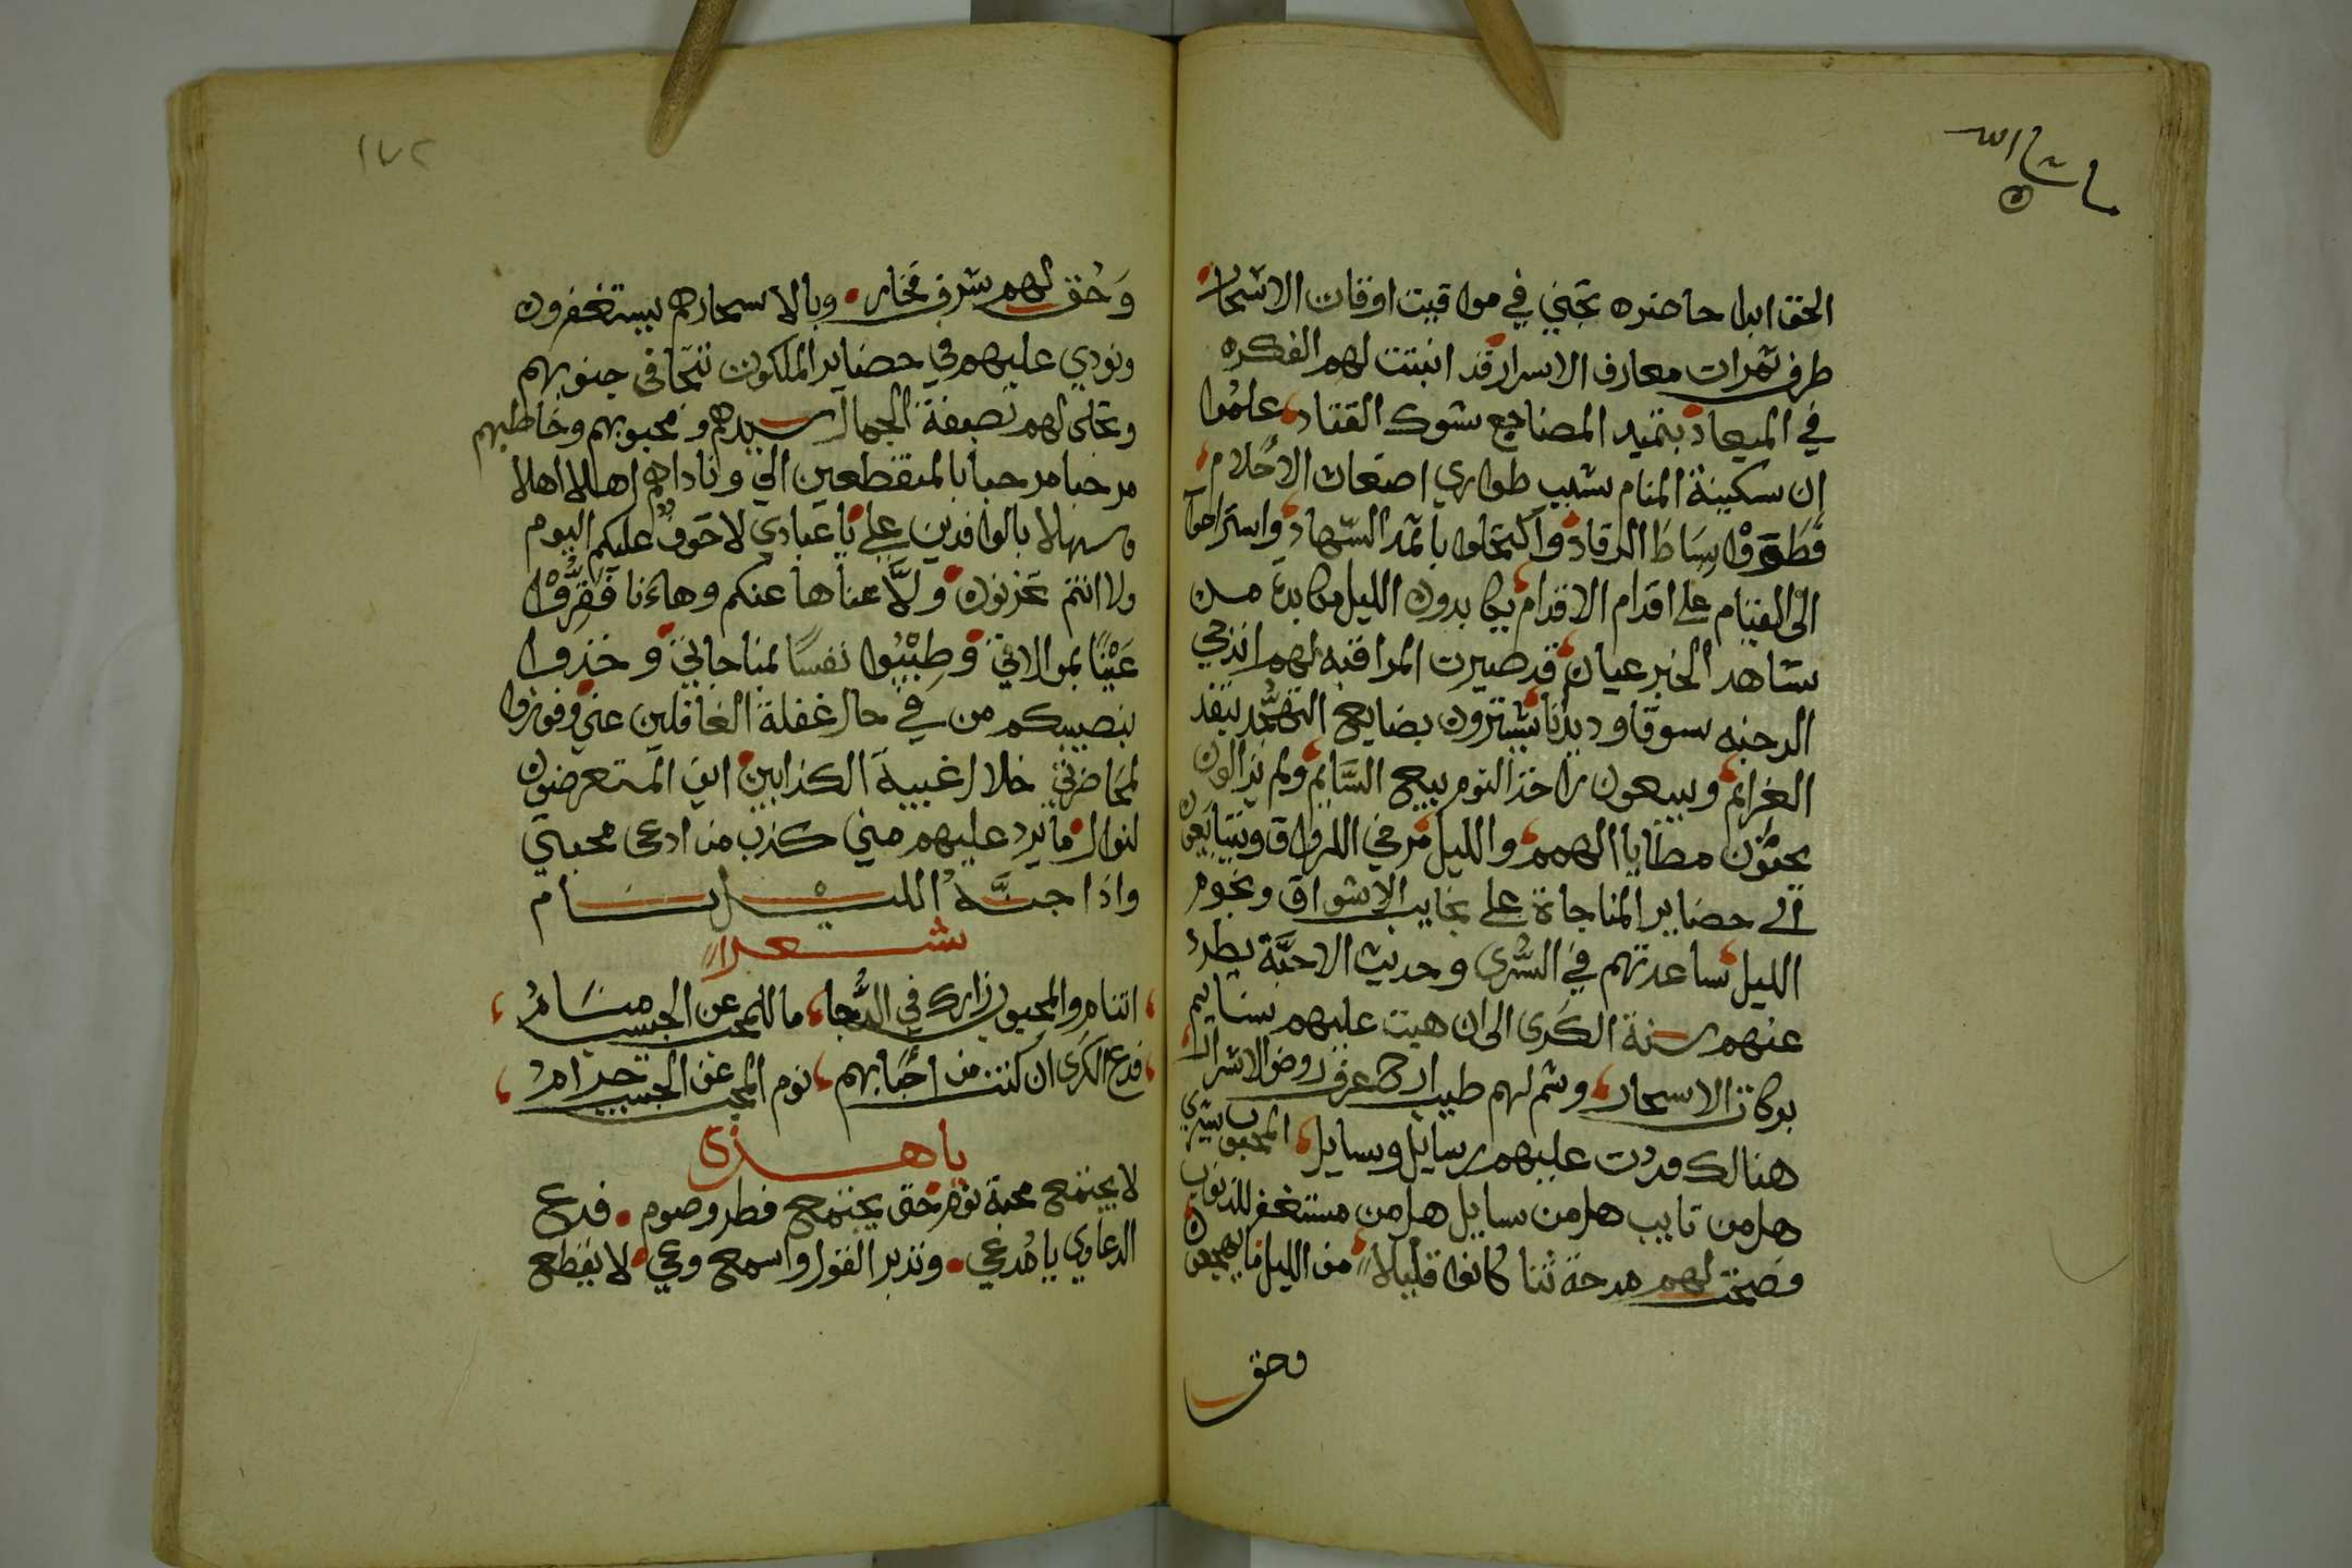 ما شا الله
الحق ابدا حاضره تجني في مواقيت اوقات الاسحار
طرف ثمرات معارف الاسرار قد انبتت لهم الفكره
في الميعاد بتمهيد المضاجع شوك القتاد علموا
ان سكينة المنام بسبب طواري اضغاث الاحلام
فطووا بساط الرقاد واكتحلوا باثمد السهاد واستراحوا
الى القيام على اقدام الاقدام يكابدون الليل مكابدة من
شاهد الخبر عيان قد صيرت المراقبه لهم اندحي
الدجنه سوقا وديدنا يشترون بضايع التهجد بنقد
الغرايم ويبيعون راخذ النوم بيع السايم ولم يزالون
يحثون مطايا الهمم والليل مرخي الرواق ويتتابعون
الى حضاير المناجاة على نجايب الاشواق ونجوم
الليل ساعدتهم في السرى وحديث الاحبة يطرد
عنهم سنة الكرى الى ان هبت عليهم نسايم
بركات الاسحار وشم لهم طيب ارج عرف روض الاسرار
هنالك وردت عليهم رسايل وسايل المحبوب تسري
هل من تايب هل من سايل هل من مستغفر للذنوب
وضحت لهم مدحة ثنا كانوا قليلا من الليل ما يهجعون
وحق
١٧٢
وحق لهم شرف فخار وبالاسحار هم يستغفرون
ونودي عليهم في حضاير الملكوت تتجافى جنوبهم
وتجلى لهم بصفة الجمال سيدهم ومحبوبهم وخاطبهم
مرحبا مرحبا بالمنقطعين الي وناداهم اهلا اهلا
وسهلا بالوافدين علي يا عبادي لا خوف عليكم اليوم
ولا انتم تحزنون ولا عناها عنكم وهاءنا فقروا
عينا بموالاتي وطيبوا نفسا بمناجاتي وخذوا
بنصيبكم من في حال غفلة الغافلين عني وفوزوا
بمحاضرتي خلال غيبة الكذابين اين المتعرضون
لنوال ما يرد عليهم مني كذب من ادعى محبتي
واذا جنه الليل نام
شعرا
اتنام والمحبوب زارك في الدجا ما للمحب عن الحبيب منام
فدع الكرى ان كنت من احبابهم نوم المحب عن الحبيب حرام
يا هذا
لا يجتمع محبة نوم حتى يجتمع فطر وصوم فدع
الدعاوي يا مدعي وتدبر القول واسمع وعي لا يقطع